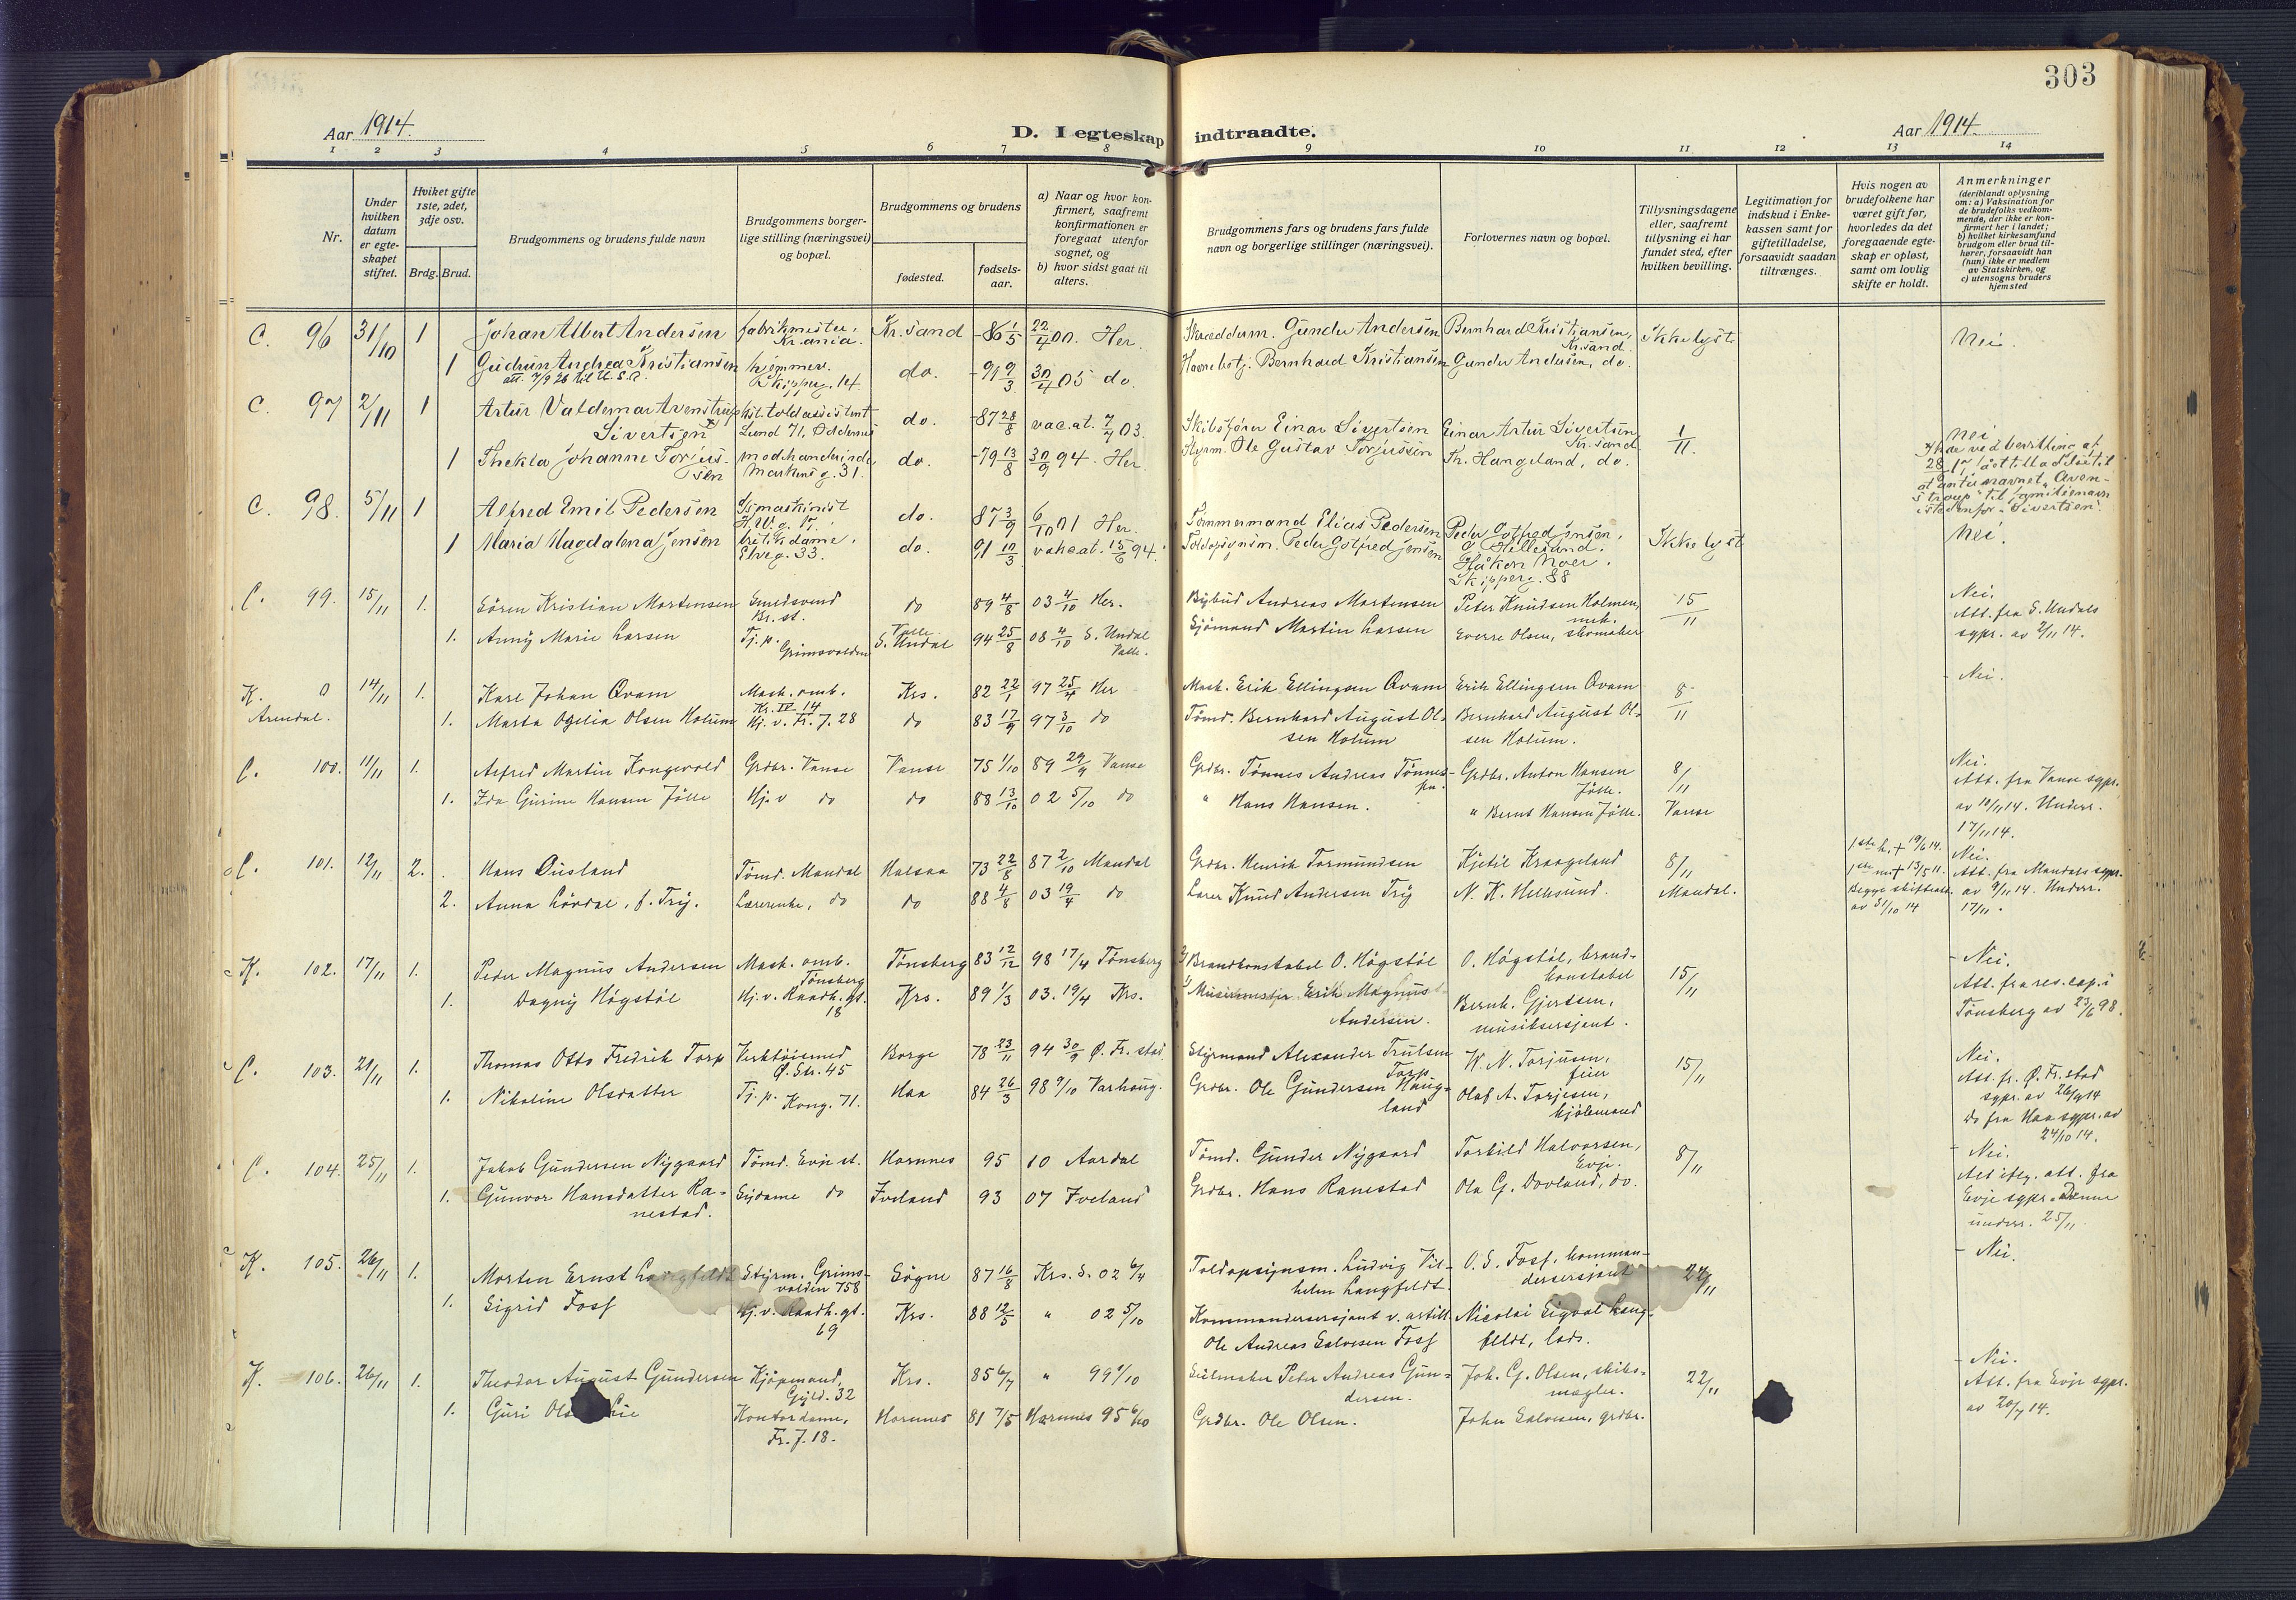 303
Aar 1914.
D. I egteskap indtraadte.
Aar 1914.
1 2 3 4 5 6 7 8 9 10 11 12 13 14
Nr.
Under hvilken datum er egteskapet stiftet.
Hviket gifte 1ste, 2det, 3dje osv.
Brdg. Brud.
Brudgommens og brudens fulde navn
Brudgommens borgerlige stilling (næringsvei) og bopæl.
Brudgommens og brudens
fødested.
fødselsaar.
a) Naar og hvor konfirmert, saafremt konfirmationen er foregaat utenfor sognet, og
b) hvor sidst gaat til alters.
Brudgommens fars og brudens fars fulde navn og borgerlige stillinger (næringsvei).
Forlovernes navn og bopæl.
Tillysningsdagene eller, saafremt tillysning ei har fundet sted, efter hvilken bevilling.
Legitimation for indskud i Enkekassen samt for giftetilladelse, forsaavidt saadan tiltrænges.
Hvis nogen av brudefolkene har været gift før, hvorledes da det foregaaende egteskap er opløst, samt om lovlig skifte er holdt.
Anmerkninger
(deriblandt oplysning om: a) Vaksination for de brudefolks vedkommende, der ikke er konfirmert her i landet; b) hvilket kirkesamfund brudgom eller brud tilhører, forsaavidt han (hun) ikke er medlem av Statskirken, og c) utensogns bruders hjemsted
C. 96 31/10 1 Johan Albert Andersen fabrikmester, Kr.ania. Kr.sand -86 1/5 22/4 00. Her. Skrædderm. Gunder Andersen Bernhard Kristiansen, Kr.sand. Ikke lyst Nei.
1 Gudrun Andrea Kristiansen hjemmev. Skipperg. 14 do. -91 9/3 30/4 05 do. Havnebetj. Bernhard Kristiansen Gunder Andersen, do.
att. 7/9 26 til U.S.A.
C. 97 2/11 1 Artur Valdemar Avenstrup Sivertsen kst. toldassistent Lund 71, Oddernes do. -87 28/8 vac.at. 7/7 03. Skibsfører Einar Sivertsen Einar Artur Sivertsen Kr.sand 1/11. Nei
1 Thekla Johanne Torjussen modehandlerinde, Markens g. 31. do. -79 13/8 30/9 94. Her. Styrm. Ole Gustav Torjussen Th. Haugeland, do.
x) har ved bevilling af 28/ 17 fåt tilladelse til at anta navnet „Avenstroup" til familienavn istedenfor „Sivertsen".
C. 98. 5/11 1 Alfred Emil Pedersen do. 87 3/9 6/10 01 Her. Tømmermand Elias Pedersen Peder Gotfred Jensen, Ikke lyst Nei.
1 Maria Magdalena Jensen Elveg. 33. do. 91 10/3 vakc.at. 15/6 94. Toldopsynsm. Peder Gotfred Jensen Håkon Moer. Skipperg. 88
C. 99. 15/11 1. Sören Kristian Mortensen Smedsvend Br. st. do 89 4/8 03 4/10 Her. Bybud Andreas Mortensen Peter Knudsen Holmen, mek. 15/11 Nei.
1. Anny Marie Larsen Tj.p. Grimsvolden Valle S. Undal 94 25/8 08 4/10 S. Undal Valle. Sjömand Martin Larsen Sverre Olsen, skomaker Att. fra S. Undals sgpr. av 2/11 14.
K. 0 14/11 1. Karl Johan Qvam Mask. omb. Kr. IV 14 Krs. 82 22/1 97 25/4 Her Mask. Erik Ellingsen Qvam Erik Ellingsen Qvam 8/11 Nei.
Arendal. 1. Marta Ogelia Olsen Holum Hj. v. Fr. J. 28 do 83 17/9 97 3/10 do Tømd. Bernhard August Olsen Holum Bernhard August Olsen Holum.
C. 100. 11/11 1. Alfred Martin Kongevold Grdbr. Vanse Vanse 75 1/10 89 29/9 Vanse Grdbr. Tønnes Andreas Tønnes- Grdbr. Anton Hansen Jölle. 8/11 Vanse Nei.
1. Ida Gurine Hansen Jölle Hj. v do do 88 13/10 02 5/10 do " Hans Hansen. " Bernt Hansen Jölle. Att. fra Vanse sgpr. av 10/11 14. Underr. 17/11 14.
C. 101. 12/11 2. Hans Øusland Tømd. Mandal Halsaa 73 22/8 87 2/10 Mandal Grdbr. Henrik Tormundsen Kjetil Kraageland 8/11 Mandal. 1ste h. + 19/6 14. Nei.
2. Anna Lövdal, f. Try. Lærerenke, do do 88 4/8 03 19/4 do Lærer Knud Andersen Try N. K. Hellesund. 1ste m. + 13/5 11. Begge skifteatt. av 31/10 14 Att. fra Mandals sgpr. av 9/11 14. Underr. 17/11.
K. 102. 17/11 1. Peder Magnus Andersen Mask. omb. Tønsberg Tønsberg 83 12/12 98 17/4 Tønsberg 2/ Brandkonstabel O. Högstöl O. Högstöl, brandkonstabel 15/11 Nei.
1. Dagny Högstöl Hj. v. Raadh. gt. 18 Krs. 89 1/3 03. 19/4 Krs. 1/ Erik Magnus Andersen. Bernh. Gjertsen, musiksersjant. Att. fra res. cap. i Tønsberg av 23/6 98.
C. 103. 21/11 1. Thomas Otto Fredrik Torp Verktöismed Ø. Str. 45 Borge 78 23/11 94 30/9 Ø. Fr. stad. Styrmand Alexander Trulsen Torp W. N. Torjusen, feier 15/11 Nei.
1. Nikoline Olsdatter Tj. p. Kong. 71. Haa 84 26/3 98 9/10 Varhaug. Grdbr. Ole Gundersen Haugland Olaf A. Torjesen, kjölemand Att. fr. Ø. Fr. stad sgpr. av 26/9 14
Do fra Haa sgpr. av 24/10 14.
C. 104. 25/11 1. Jakob Gundersen Nygaard Tømd. Evje st. Hornnes 95 10 Aardal Tømd. Gunder Nygaard Torkild Halvorsen, Evje. 8/11 Nei.
1. Gunvor Hansdatter Ranestad. Sydame do Iveland 93 07 Iveland Grdbr. Hans Ranestad Ola G. Dovland, do. Alt iflg. att. fra Evje sgpr. Denne underr. 25/11.
K. 105. 26/11 1. Morten Ernst Langfeldt Styrm. Grimsvolden 758 Sögne 87 16/8 Krs. S. 02 6/4 Toldopsynsm. Ludvig Vilhelm Langfeldt. O. S. Foss, kommandersersjant 22/11 Nei.
1. Sigrid Foss Hj. v. Raadh. gt. 69 Krs. 88 12/5 " 02 5/10 Kommandersersjant v. artill. Ole Andreas Salvesen Foss Nicolai Sigval Langfeldt, lods.
K. 106. 26/11 1. Theodor August Gundersen Kjöpmand, Gyld. 32 Krs. 85 6/7 " 99 1/10 Seilmaker Peter Andreas Gundersen. Joh. G. Olsen, skibsmægler. 22/11 Nei.
1. Guri Ols Lie Kontordame, Fr. J. 18. Hornnes 81 7/5 Hornnes 95 6/10 Grdbr. Ole Olsen. John Salvesen, grdbr. Att. fra Evje sgpr. av 20/7 14.